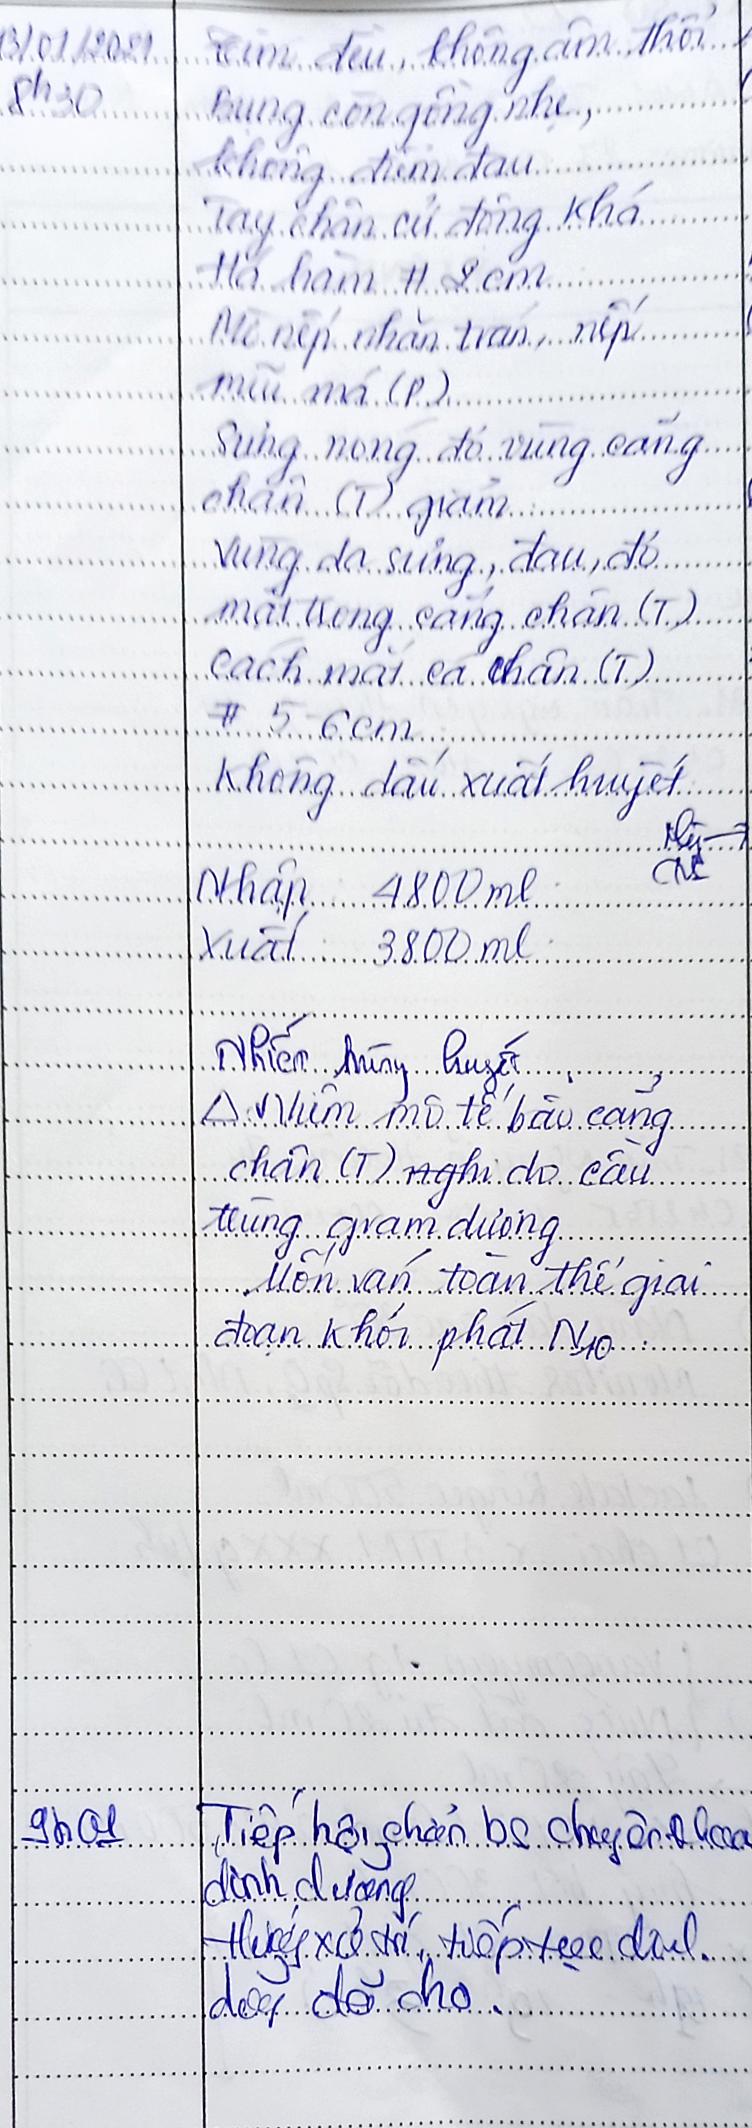 13/01/2021 Tim đều, không âm thổi
8h30 Bụng còn gồng nhẹ,
không điểm đau
Tay chân cử động khá
Há hàm # 2cm
Mờ nếp nhăn trán, nếp
mũi má (P)
Sưng nóng đỏ vùng cẳng
chân (T) giảm
Vùng da sưng, đau, đỏ
mặt trong cẳng chân (T)
cách mắt cá chân (T)
# 5-6cm
Không dấu xuất huyết
Nhập : 4800ml
Xuất : 3800ml
Nhiễm trùng huyết
Δ Nhiễm mô tế bào cẳng
chân (T) nghi do cầu
trùng gram dương
Uốn ván toàn thể giai
đoạn khởi phát N10
9h01 Tiếp hội chẩn bs chuyên khoa
dinh dưỡng
Hướng xử trí, tiếp tục dinh
dưỡng đã cho.